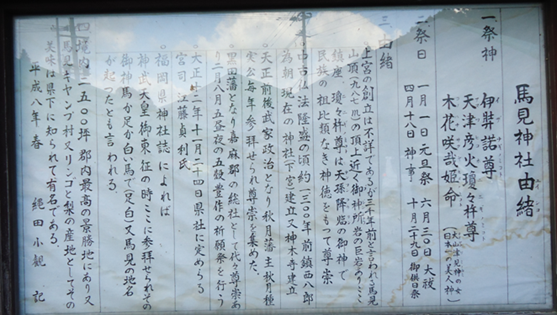 馬見神社由緒
一祭神
伊弉諾尊
天津彦火瓊々杵尊
木花咲哉姫命
(大山津見神の女
日本一の美人神)
二祭日
一月一日元旦祭 六月三〇日大祓
四月十八日神事 十月二十九日御供日祭
三由緒
上宮の創立は不詳であるが三千年前と言われる馬見
山頂(九八七米)の頂上近く御神所岩の巨岩ありここに
鎮座 瓊々杵尊は天孫降臨の御神で
民族の祖比類なき神徳をもって尊崇
中古仏法隆盛の頃約一三〇〇年前鎮西八郎
為朝現在の神社(下宮)建立又神木寺建立
天正前後武家政治となり秋月藩主秋月種
実公毎年参拝せられ尊崇を集めた
黒田藩となり嘉麻郡の総社として代々尊崇あり
二月八月五昼夜の五穀豊作の祈願祭を行う
大正十二年十一月二十四日県社に定めらる
宮司工藤貞利氏
福岡県神社誌によれば
神武天皇御東征の時ここに参拝せられその
御神馬が足が白い馬で(足白)又馬見の地名
が起ったとも言われる
四境内 二五〇〇坪 郡内最高の景勝地にあり又
馬見キャンプ村又リンゴと梨の産地としてその
美味は県下に知られて有名である
平成八年 春 縄田小観 記